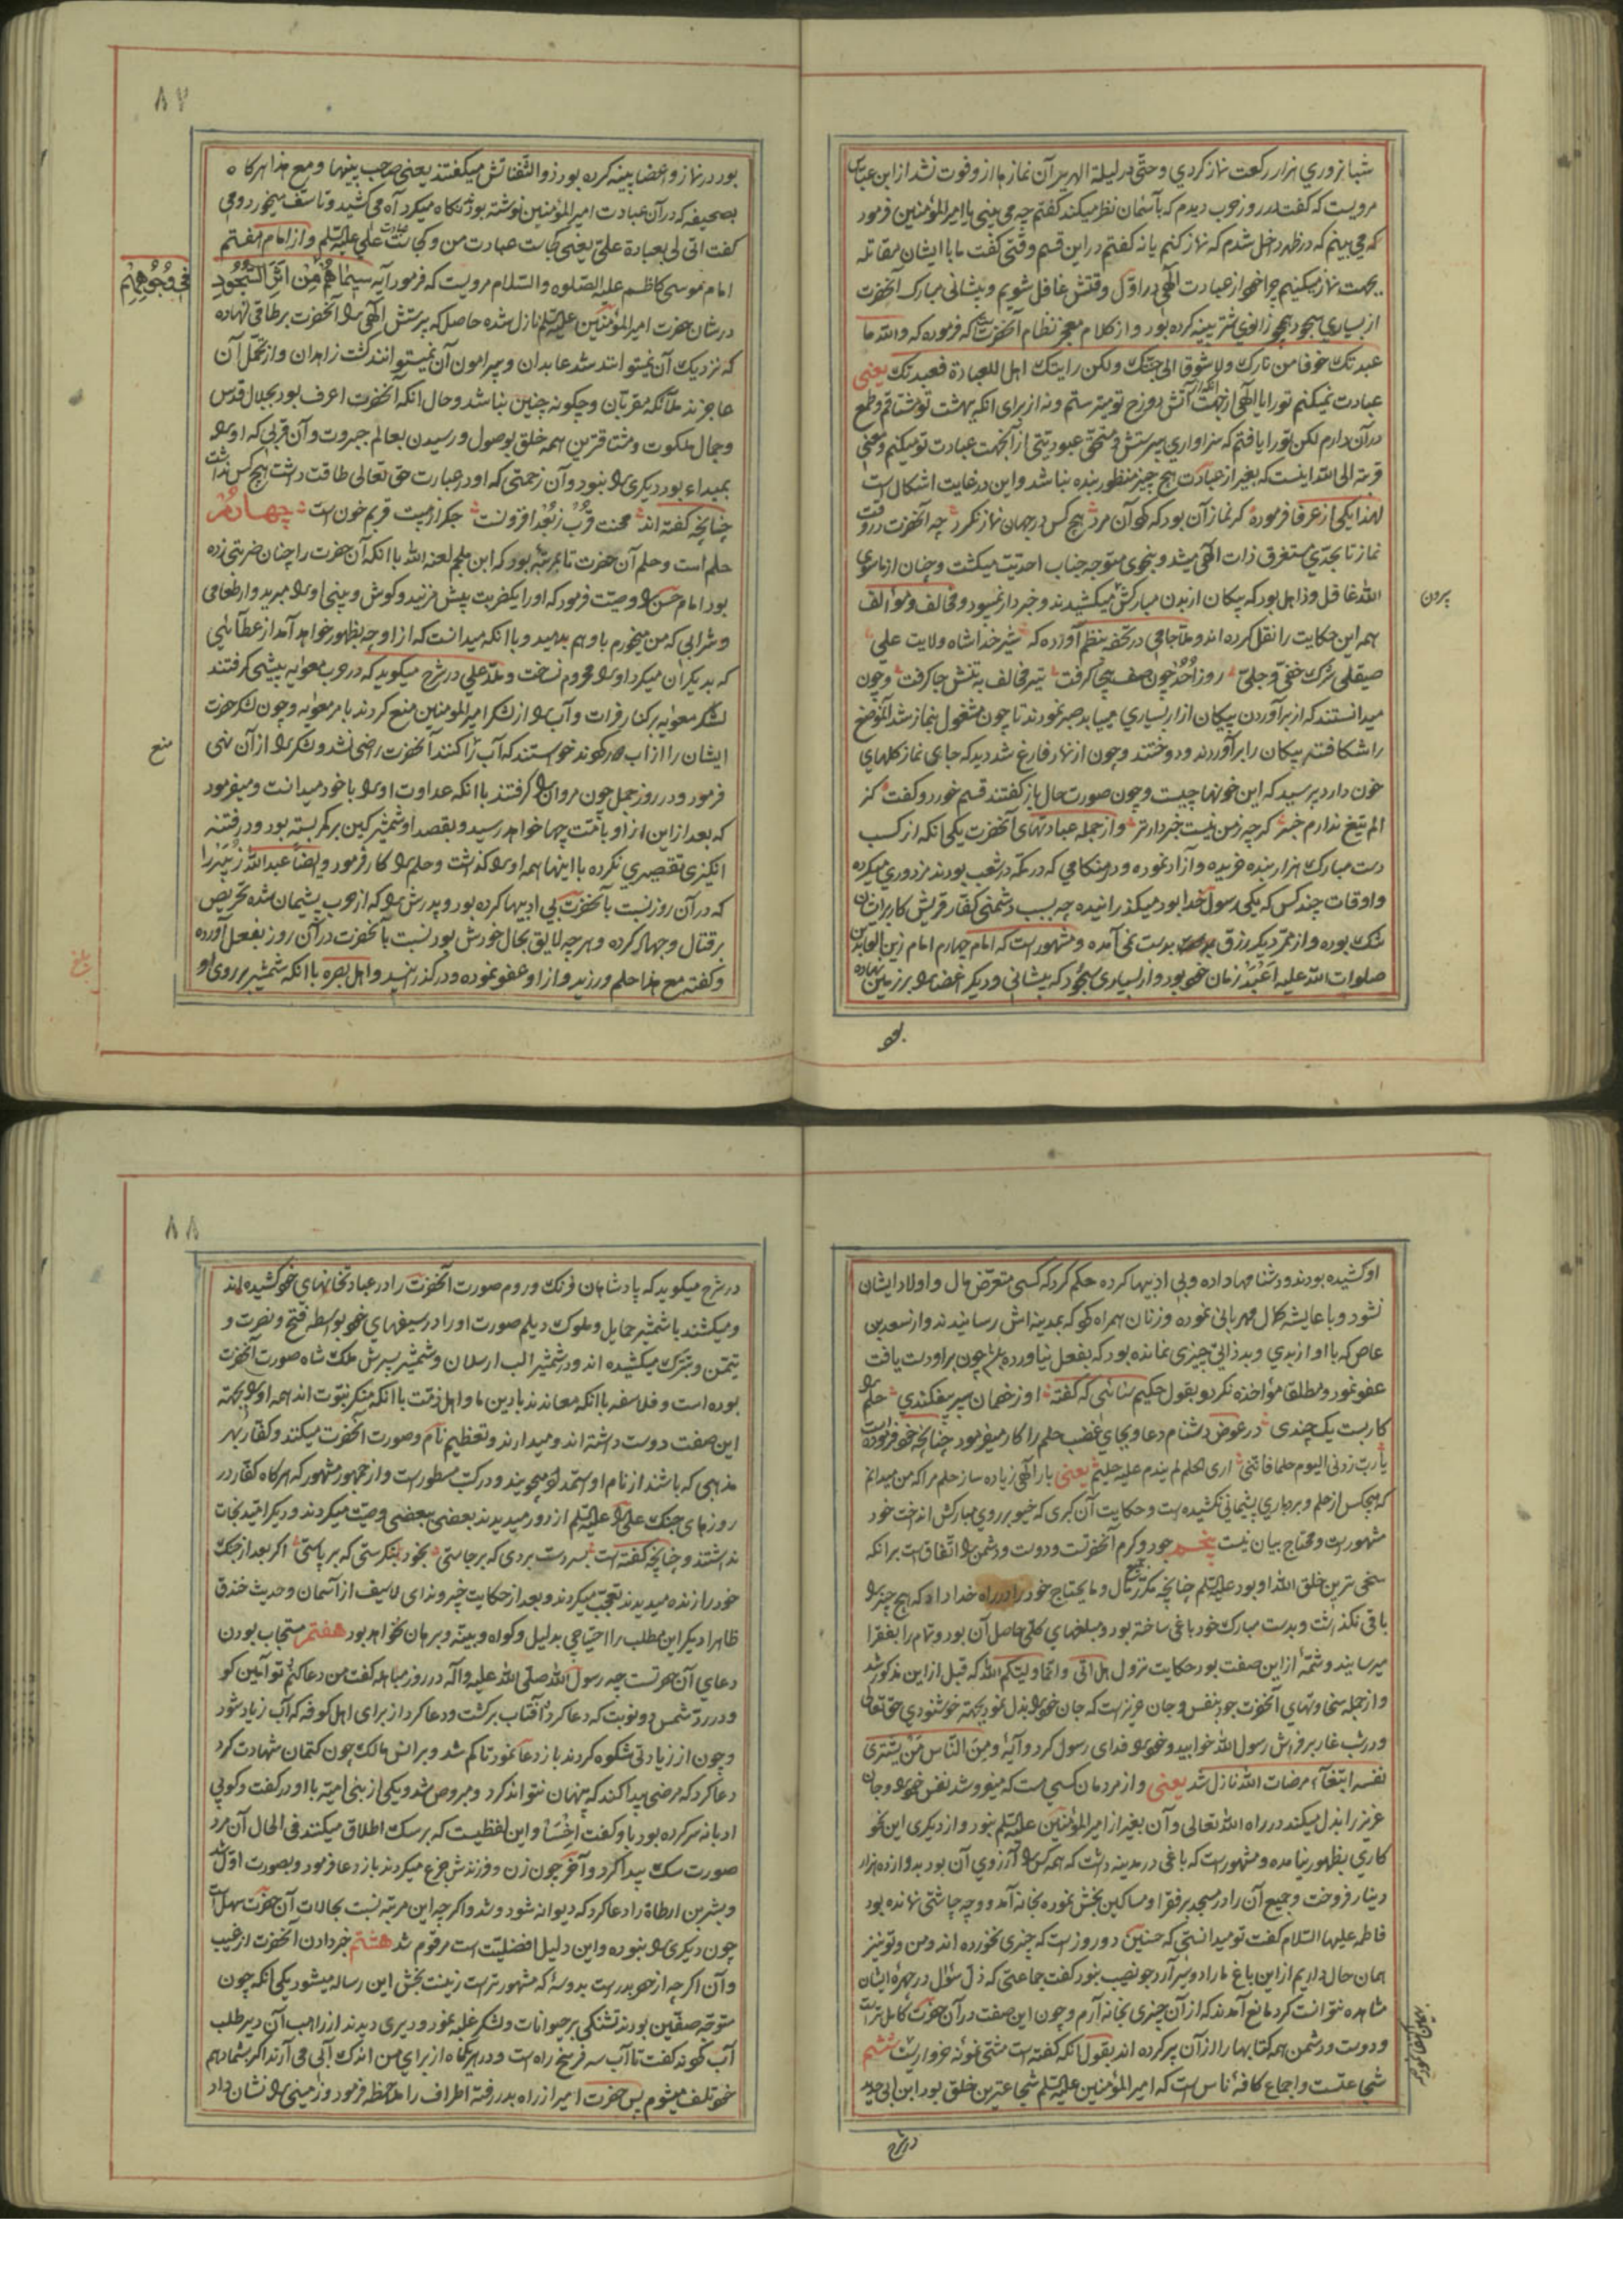 شبانروزی هزار رکعت نماز کردی و حتی در لیلة الهریر آن نمازها ازو فوت نشد از ابن عباس
مرویست که گفت در روز حرب دیدم که بآسمان نظر میکند گفتم چه می بینی یا امیرالمؤمنین فرمود
که می بینم که در ظهر داخل شدم که نماز کنم یا نه گفتم در این قسم وقتی گفت ما با ایشان مقاتله
بجهت نماز میکنیم چرا خود از عبادت الهی در اول وقتش غافل شویم و پیشانی مبارک آنحضرت
از بسیاری سجود همچو زانوی شتر پینه کرده بود و از کلام معجز نظام آنحضرتست که فرموده که والله ما
عبدتک خوفا من نارک ولا شوقا الی جنتک ولکن رایتک اهل للعبادة فعبدتک یعنی
عبادت نمیکنم تو را یا الهی از جهت آنکه از آتش دوزخ تو میترسم و نه از برای انکه بهشت تو مشتاقم و طمع
در آن دارم لکن تو را یافتم که سزاواری بپرستش و مستحق عبودیتی از آنجهت عبادت تو میکنم و معنی
قربة الی الله اینست که بغیر از عبادت هیچ چیز منظور بنده نباشد و این در غایت اشکال است
لهذا یکی از عرفا فرموده کر نماز آن بود که کو آن مرد هیچ کس در جهان نماز نکرد چه آنحضرت در وقت
نماز تا بحدی مستغرق ذات الهی میشد و بنحوی متوجه جناب احدیت میکشت و چنان از ماسوی
الله غافل و ذاهل بود که پیکان از بدن مبارکش میکشیدند و خبردار نمیبود و مخالف و مؤالف
همه این حکایت را نقل کرده اند و ملا جامی در تحفه بنظم آورده که شیر خدا شاه ولایت علی
صیقلی شرک خفی و جلی روز احد چون صف هیجا کرفت تیر مخالف به تنش جا کرفت و چون
میدانستند که از برآوردن پیکان ازار بسیاری میابد صبر نمودند تا چون مشغول بنماز شد آنموضع
را شکافته پیکان را برآوردند و دوختند و چون از نماز فارغ شد دید که جای نماز کلهای
خون دارد پرسید که این خونها چیست و چون صورت حال باز کفتند قسم خورد و کفت کز
الم تیغ ندارم خبر کر چه ز من نیست خبردارتر و از جمله عبادتهای آنحضرت یکی انکه از کسب
دست مبارک هزار بنده خریده و آزاد نموده و در هنکامی که در مکه در شعب بودند مزدوری میکرده
و اوقات چند کس که یکی رسول خدا بود میکذرانیده چه بسبب دشمنی کفار قریش کار بر ایشان
تنک بوده و از ممر دیکر رزق بدست نمی آمده و مشهور است که امام چهارم امام زین العابدین
صلوات الله علیه اعبد زمان خود بود و از بسیاری سجود که پیشانی و دیکر اعضا را بر زمین نهاده
بود
برون
۸۷
بود در نماز و اعضا پینه کرده بود ذو الثفناتش میکفتند یعنی صاحب پینها و مع هذا هر کاه
بصحیفه که در آن عبادت امیرالمؤمنین نوشته بود نکاه میکرد آه می کشید و تاسف میخورد و می
کفت انی لی بعبادة علی یعنی کجاست عبادت من و کجاست عبادت علی علیه السلم و از امام هفتم
امام موسی کاظم علیه الصلوه والسلام مرویست که فرمود آیه سیماهم من اثر السجود
فی وجوههم
در شان حضرت امیر المؤمنین علیه السلم نازل شده حاصل که پرستش الهی را آنحضرت بر طاقی نهاده
که نزدیک آن نمیتوانند شد عابدان و پیرامون آن نمیتوانند کشت زاهدان و از تحمل آن
عاجزند ملائکه مقربان و چکونه چنین نباشد و حال انکه آنحضرت اعرف بود بجلال قدس
و جمال ملکوت و مشتاقترین همه خلق بوصول و رسیدن بعالم جبروت و آن قربی که او را
بمبداء بود دیکری را نبود و آن زحمتی که او در عبارت حق تعالی طاقت داشت هیچ کس نداشت
چنانچه کفته اند محنت قرب ز بعد افزونست جکر از هیبت قربم خون است چهارم
حلم است و حلم آن حضرت تا بمرتبه بود که ابن ملجم لعنه الله با انکه آن حضرت را چنان ضربتی زده
بود امام حسن را وصیت فرمود که او را یکضربت بیش مزنید و کوش و بینی او را مبرید و از طعامی
و شرابی که من میخورم باو هم بدهید و با انکه میدانست که از او چه بظهور خواهد آمد از عطائی
که بدیکران میکرد او را محروم نساخت و ملا علی در شرح میکوید که در حرب معویه پیشی کرفتند
لشکر معویه بر کنار فرات و آب را از لشکر امیرالمؤمنین منع کردند بامر معویه و چون لشکر حضرت
ایشان را از آب دور کردند خواستند که آب را کنند آنحضرت راضی نشد و لشکر را از آن نهی
منع
فرمود و در روز جمل چون مروان را کرفتند با انکه عداوت او را با خود میدانست و میفرمود
که بعد از این از او بامت چها خواهد رسید و بقصد او شمشیر کین بر کمر بسته بود و در فتنه
انکیزی تقصیری نکرده با اینها همه او را کذاشت و حلم را کار فرمود و ایضا عبدالله زبیر را
که در آن روز نسبت بآنحضرت بی ادبیها کرده بود و پدرش را که از حرب پشیمان شده تحریض
بر قتال و جهاد کرده و هر چه لایق بحال خودش بود نسبت بآنحضرت در آن روز بفعل آورده
و کفته مع هذا حلم ورزید و از او عفو نموده و در کذرانید و اهل بصره با انکه شمشیر بر روی او
بلغ
او کشیده بودند و دشنامها داده و بی ادبیها کرده حکم کرد که کسی متعرض مال و اولاد ایشان
نشود و با عایشه کمال مهربانی نموده و زنان همراه کرد که بمدینه اش رسانیدند و از سعد بن
عاص که با او از بدی و بدذاتی چیزی نمانده بود که بفعل نیاورده باشد چون بر او دست یافت
عفو نمود و مطلقا مؤاخذه نکرد و بقول حکیم سنائی که کفته او ز خصمان سپر بیفکندی حلم را
کار بست یک چندی در عوض دشنام دعا و بجای غضب حلم را کار میفرمود چنانچه خود فرموده است
یا رب زدنی الیوم حلما فاننی اری الحلم لم یندم علیه حلیم یعنی بار الهی زیاده ساز حلم مرا که من میدانم
که هیچکس از حلم و بردباری پشیمانی نکشیده است و حکایت آن کبری که خیو بر روی مبارکش انداخت خود
مشهور است و محتاج بیان نیست پنجم جود و کرم آنحضرتست و دوست و دشمن را اتفاق است بر انکه
سخی ترین خلق الله او بود علیه السلم چنانچه مکرر جمیع مال و ما یحتاج خود را در راه خدا داد که هیچ چیز را
باقی نکذاشت و بدست مبارک خود باغی ساخته بود و مبلغهای کلی حاصل آن بود و تمام را بفقرا
میرسانید و شمه از این صفت بود حکایت نزول هل اتی و انما ولیکم الله که قبل از این مذکور شد
و از جمله سخاوتهای آنحضرت جود بنفس و جان عزیز است که جان خود را بذل نمود بجهته خوشنودی حق تعالی
و در شب غار بر فراش رسول الله خوابید و خود را فدای رسول کرد و آیه و من الناس من یشتری
نفسه ابتغاء مرضات الله نازل شد یعنی و از مردمان کسی هست که میفروشد نفس خود را و جان
عزیز را بذل میکند در راه الله تعالی و آن بغیر از امیر المؤمنین علیه السلم نبود و از دیکری این نحو
کاری بظهور نیامده و مشهور است که باغی در مدینه داشت که همه کس را آرزوی آن بود بدوازده هزار
دینار فروخت و جمیع آن را در مسجد بر فقرا و مساکین بخش نموده بخانه آمد و وجه چاشتی نمانده بود
فاطمه علیها السلام کفت تو میدانستی که حسنین دو روز است که چیزی نخورده اند و من و تو نیز
همان حال داریم از این باغ ما را دو سیر آرد جو نصیب نبود کفت جماعتی که ذل سؤال در چهره ایشان
مشاهده نتوانست کرد مانع آمدند که از آن چیزی بخانه آرم و چون این صفت در آن حضرت کامل تر است
و دوست و دشمن همه کتابها را از آن پر کرده اند بقول انکه کفته است مشتی نمونه خروار است ششم
شجاعتست و اجماع کافه ناس است که امیر المؤمنین علیه السلم شجاعترین خلق بود ابن ابی حدید
در شرح
۸۸
در شرح میکوید که پادشاهان فرنک و روم صورت آنحضرت را در عبادتخانهای خود کشیده اند
و میکشند با شمشیر حمایل و ملوک دیلم صورت او را در سیفهای خود بواسطه فتح و نصرت و
تیمن و تبرک میکشیده اند و در شمشیر الب ارسلان و شمشیر پسرش ملک شاه صورت آنحضرت
بوده است و فلاسفه با انکه معاندند با دین ما و اهل ذمت با انکه منکر نبوت اند همه او را بجهة
این صفت دوست داشته اند و میدارند و تعظیم نام و صورت آنحضرت میکنند و کفار بهر
مذهبی که باشند از نام او استمداد میجویند و در کتب مسطور است و از جمهور مشهور که هر کاه کفار در
روزهای جنک علی را علیه السلم از دور میدیدند بعضی ببعضی وصیت میکردند و دیکر امید نجات
نداشتند و چنانچه کفته است بسر دست بردی که برجاستی بخود بنکرستی که بر پاستی اکر بعد از جنک
خود را زنده میدیدند تعجب میکردند و بعد از حکایت خیبر و ندای لا سیف از آسمان و حدیث خندق
ظاهرا دیکر این مطلب را احتیاجی بدلیل و کواه و بینه و برهان نخواهد بود هفتم مستجاب بودن
دعای آن حضرتست چه رسول الله صلی الله علیه و اله در روز مباهله کفت من دعا کنم تو آمین کو
و در رد شمس دو نوبت که دعا کرد آفتاب برکشت و دعا کرد از برای اهل کوفه که آب زیاد شود
و چون از زیادتی شکوه کردند باز دعا نمود تا کم شد و بر انس مالک چون کتمان شهادت کرد
دعا کرد که مرضی پیدا کند که پنهان نتواند کرد و مبروص شد و یکی از بنی امیه با او درکفت و کوبی
ادبانه سر کرده بود باو کفت اخسأ و این لفظیست که بر سک اطلاق میکنند فی الحال آن مرد
صورت سک پیدا کرد و آخر چون زن و فرزندش جزع میکردند باز دعا فرمود و بصورت اول شد
و بشر بن ارطاة را دعا کرد که دیوانه شود و شد و اکر چه این مرتبه نسبت بحالات آن حضرت سهل است
چون دیکری را نبوده و این دلیل افضلیت است مرقوم شد هشتم خبر دادن آنحضرت از غیب
و آن اکر چه از حد بدر است بدو سه که مشهورتر است زینت بخش این رساله میشود یکی انکه چون
متوجه صفین بودند تشنکی بر حیوانات و لشکر غلبه نمود و دیری دیدند از راهب آن دیر طلب
آب کردند کفت تا آب سه فرسخ راه است و در هر یکماه از برای من اندک آبی می آرند اکر بشما دهم
خود تلف میشوم پس حضرت امیر از راه بدر رفته اطراف را ملاحظه فرمود و زمینی را نشان داد